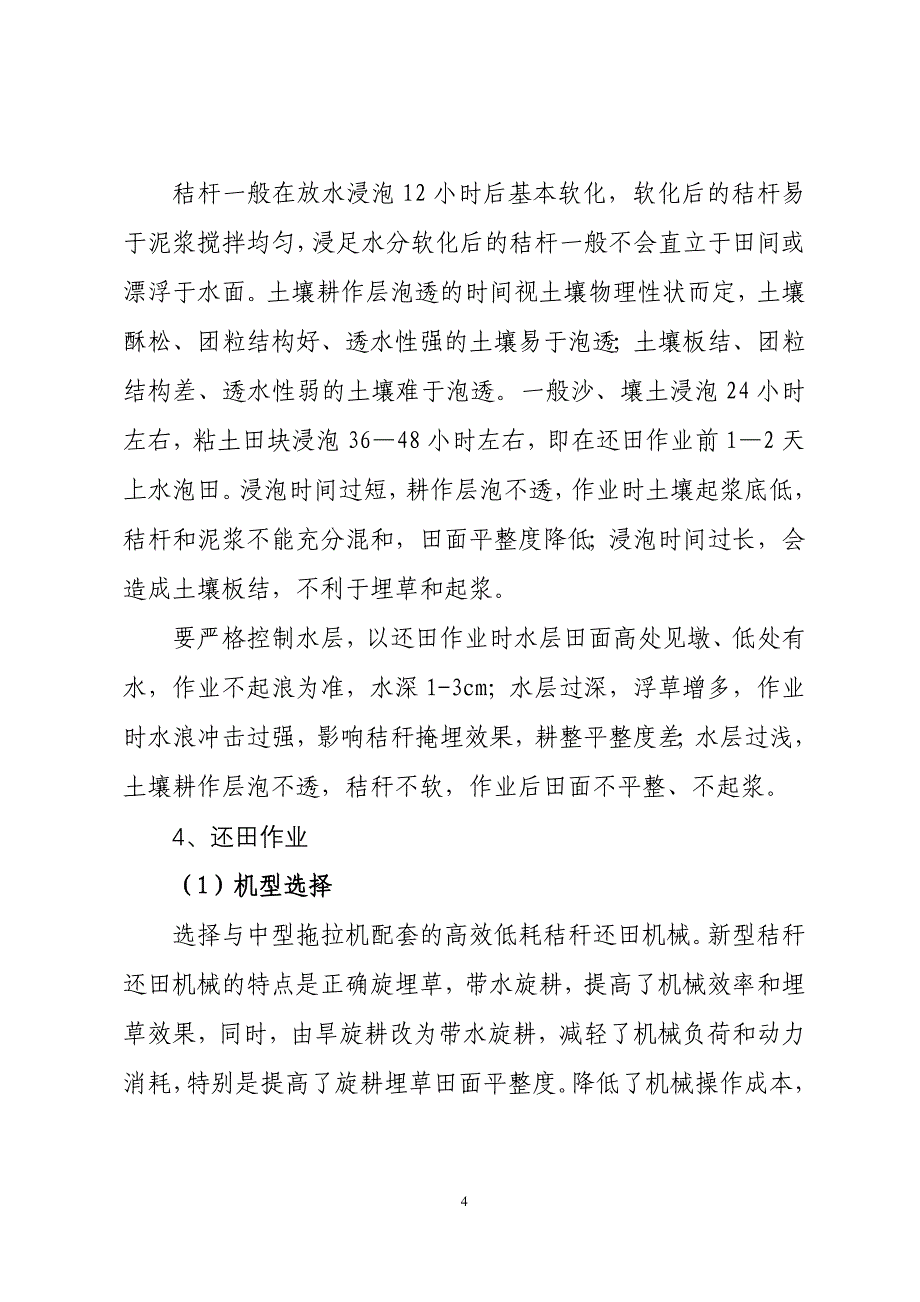 秸杆一般在放水浸泡 12 小时后基本软化，软化后的秸杆易
于泥浆搅拌均匀，浸足水分软化后的秸杆一般不会直立于田间或
漂浮于水面。土壤耕作层泡透的时间视土壤物理性状而定，土壤
酥松、团粒结构好、透水性强的土壤易于泡透；土壤板结、团粒
结构差、透水性弱的土壤难于泡透。一般沙、壤土浸泡 24 小时
左右，粘土田块浸泡 36—48 小时左右，即在还田作业前 1—2 天
上水泡田。浸泡时间过短，耕作层泡不透，作业时土壤起浆底低，
秸杆和泥浆不能充分混和，田面平整度降低；浸泡时间过长，会
造成土壤板结，不利于埋草和起浆。
要严格控制水层，以还田作业时水层田面高处见墩、低处有
水，作业不起浪为准，水深 1-3cm；水层过深，浮草增多，作业
时水浪冲击过强，影响秸秆掩埋效果，耕整平整度差；水层过浅，
土壤耕作层泡不透，秸秆不软，作业后田面不平整、不起浆。
4、还田作业
（1）机型选择
选择与中型拖拉机配套的高效低耗秸秆还田机械。新型秸秆
还田机械的特点是正确旋埋草，带水旋耕，提高了机械效率和埋
草效果，同时，由旱旋耕改为带水旋耕，减轻了机械负荷和动力
消耗，特别是提高了旋耕埋草田面平整度。降低了机械操作成本，
4